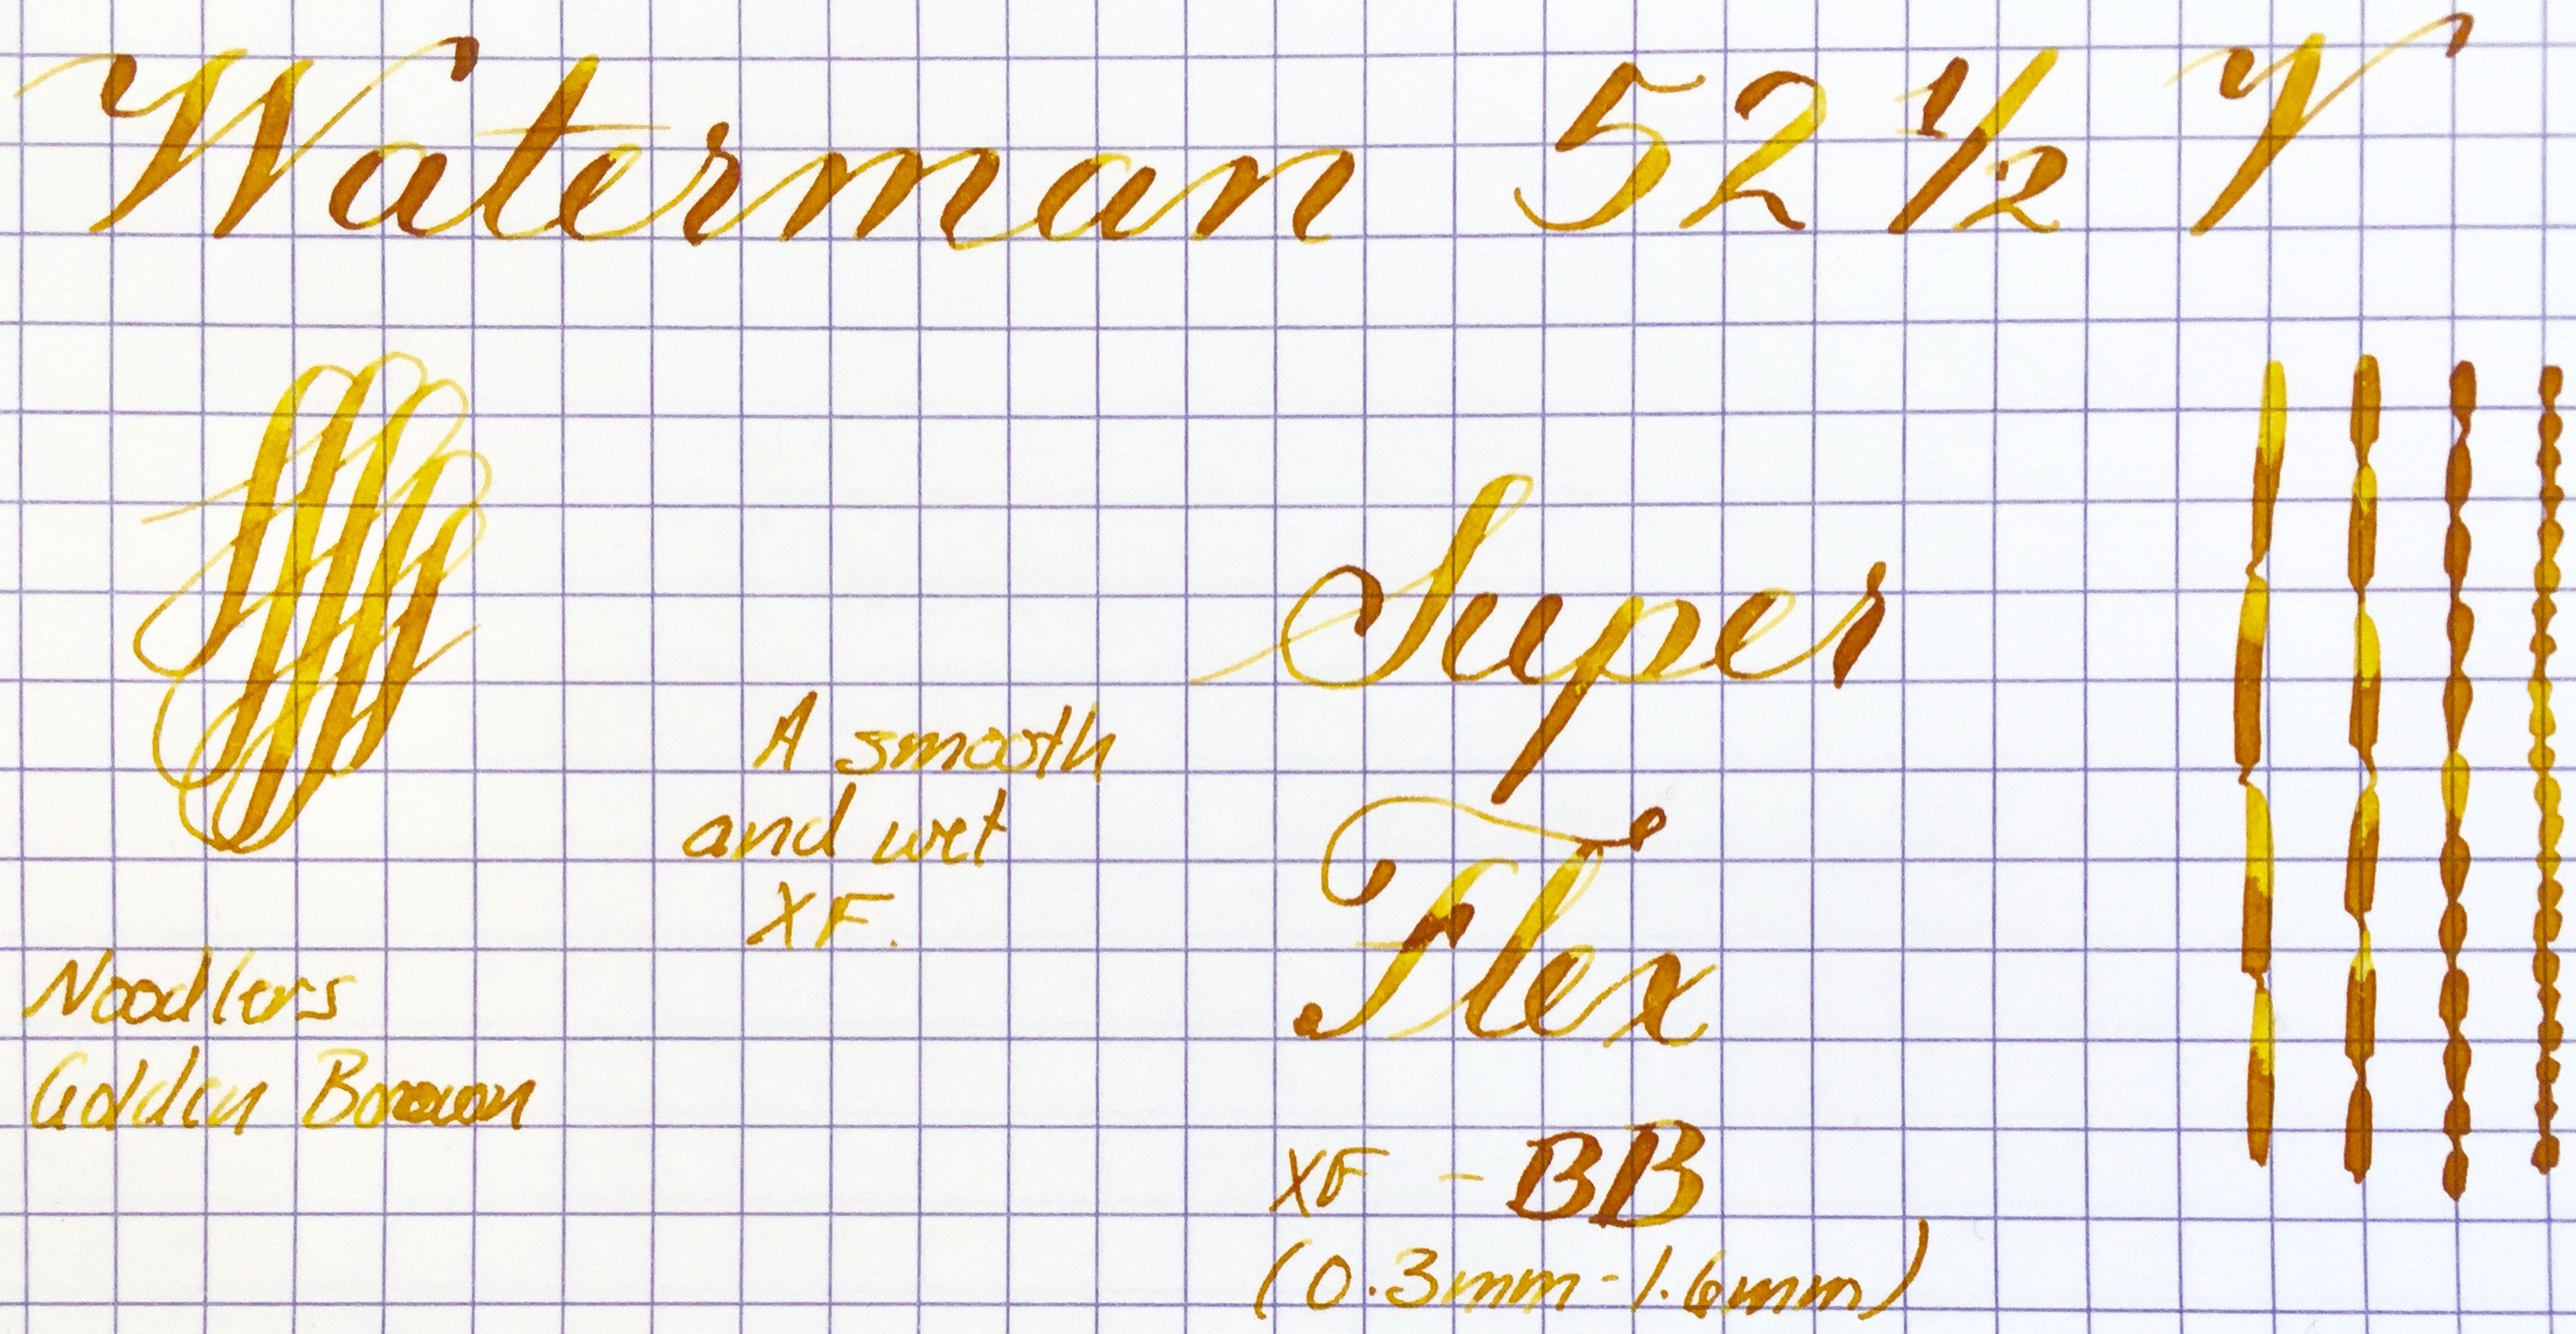 Waterman 52 1/2 V
Super
Flex
A smooth
and wet
XF.
Noodlers
Golden Brown
XF - BB
(0.3mm-1.6mm)